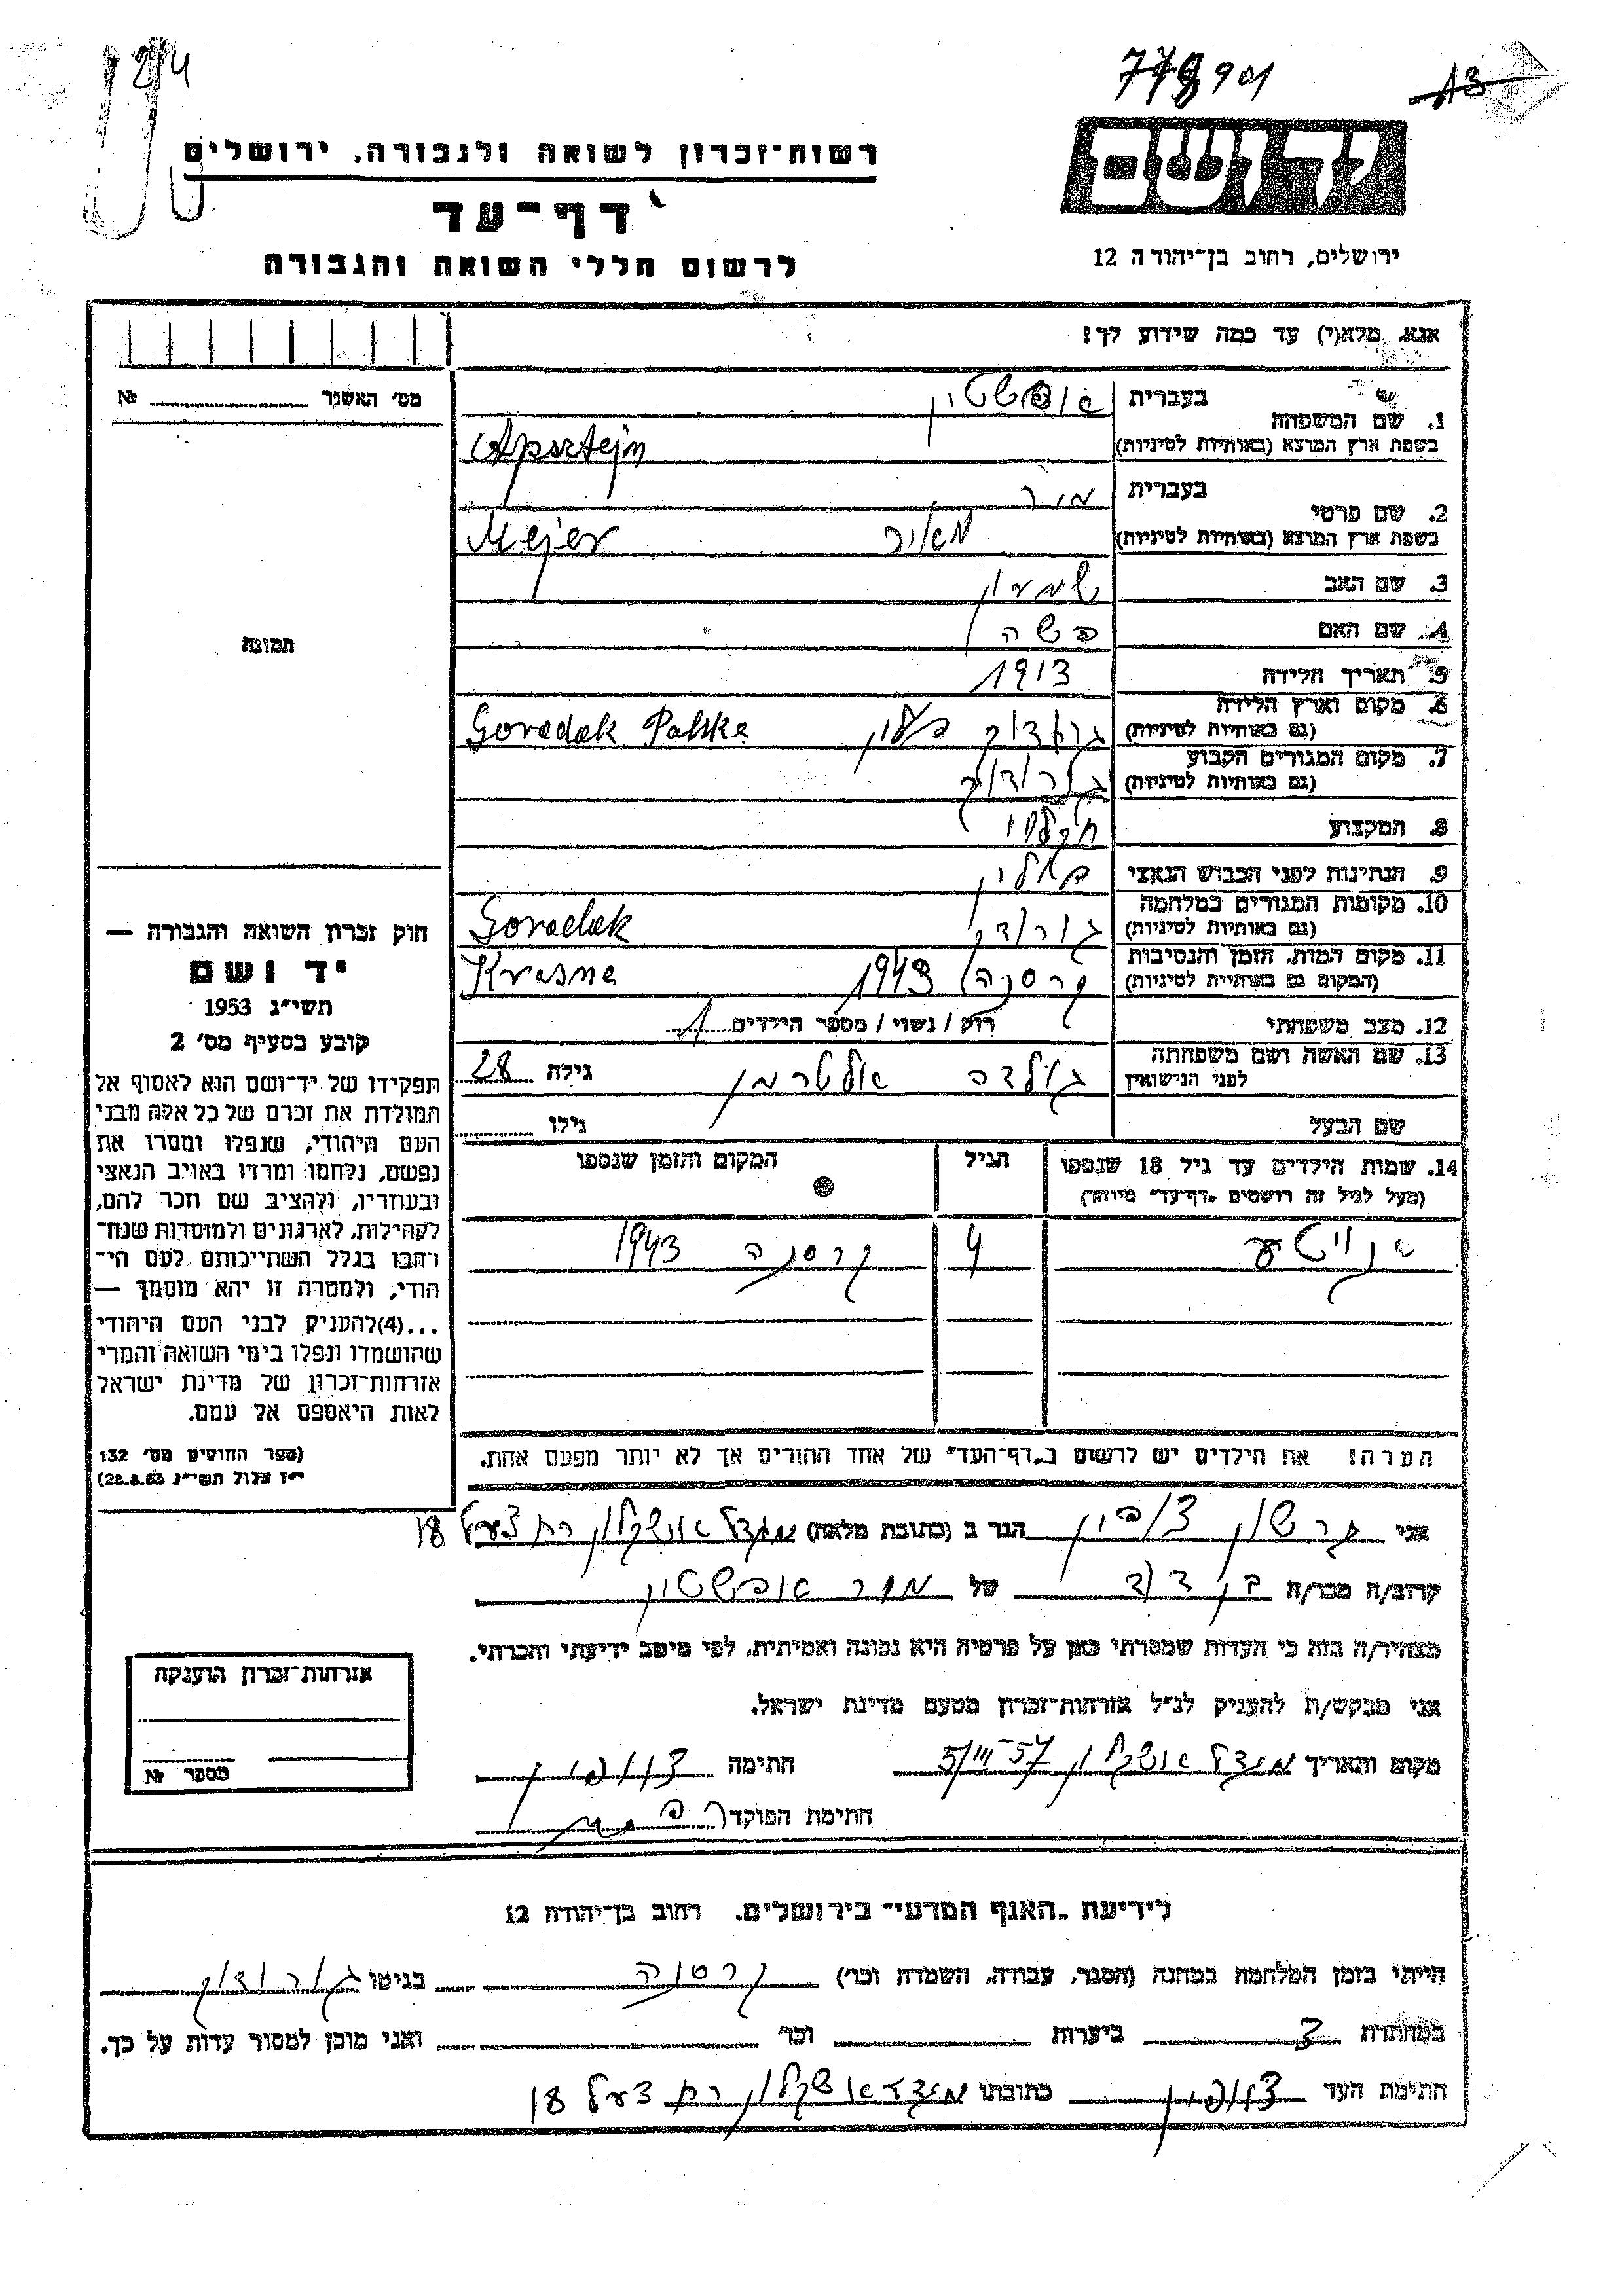 2/4
778901
A3
יד ושם
רשות־זכרון לשואה ולגבורה, ירושלים
דף־עד
ירושלים, רחוב בן־יהודה 12
לרשום חללי השואה והגבורה
אנא, מלא(י) עד כמה שידוע לך!
מס׳ האשור № 
1. שם המשפחה בעברית אופשטיין
בשפת ארץ המוצא (באותיות לטיניות) Apsztejn
2. שם פרטי בעברית מיר
בשפת ארץ המוצא (באותיות לטיניות) מאיר Mejer
3. שם האב שמעון
4. שם האם פשה
תמונה
5. תאריך הלידה 1913
6. מקום וארץ הלידה
(גם באותיות לטיניות) גורודוק פולין Goradok Polske
7. מקום המגורים הקבוע
(גם באותיות לטיניות) גורודוק
8. המקצוע חקלאי
9. הנתינות לפני הכבוש הנאצי פולין
10. מקומות המגורים במלחמה
(גם באותיות לטיניות) גורודוק Goradok
11. מקום המות, הזמן והנסיבות
(המקום גם באותיות לטיניות) קרסנה 1943 Krasne
12. מצב משפחתי רוק / נשוי / מספר הילדים 1
13. שם האשה ושם משפחתה
לפני הנישואין גולדה אלטרמן גילה 28
שם הבעל גילו
14. שמות הילדים עד גיל 18 שנספו הגיל המקום והזמן שנספו
(מעל לגיל זה רושמים „דף־עד״ מיוחד)
4 קרסנה 1943
הערה! את הילדים יש לרשום ב„דף־העד״ של אחד ההורים אך לא יותר מפעם אחת.
חוק זכרון השואה והגבורה —
יד ושם
תשי״ג 1953
קובע בסעיף מס׳ 2
תפקידו של יד־ושם הוא לאסוף אל
המולדת את זכרם של כל אלה מבני
העם היהודי, שנפלו ומסרו את
נפשם, נלחמו ומרדו באויב הנאצי
ובעוזריו, ולהציב שם וזכר להם,
לקהילות, לארגונים ולמוסדות שנח־
רבו בגלל השתייכותם לעם הי־
הודי, ולמטרה זו יהא מוסמך —
...(4)להעניק לבני העם היהודי
שהושמדו ונפלו בימי השואה והמרי
אזרחות־זכרון של מדינת ישראל
לאות היאספם אל עמם.
(ספר החוקים מס׳ 132
י״ז אלול תשי״ג 28.8.53)
אני גרשון צופין הגר ב (כתובת מלאה) מגדל אשקלון רח צהל 18
קרוב/ה מכר/ה בן דוד של מיר אופשטיין
מצהיר/ה בזה כי העדות שמסרתי כאן על פרטיה היא נכונה ואמיתית, לפי מיטב ידיעתי והכרתי.
אני מבקש/ת להעניק לנ״ל אזרחות־זכרון מטעם מדינת ישראל.
מקום ותאריך מגדל אשקלון 5/III-57 חתימה צופין
חתימת הפוקד
אזרחות־זכרון הוענקה
מספר №
לידיעת „האגף המדעי״ בירושלים. רחוב בן־יהודה 12
הייתי בזמן המלחמה במחנה (הסגר, עבודה, השמדה וכר׳) קרסנה בגיטו גורודוק
במחתרת ביערות וכר׳ ואני מוכן למסור עדות על כך.
חתימת העד צופין כתובתו מגדל אשקלון רח צהל 18